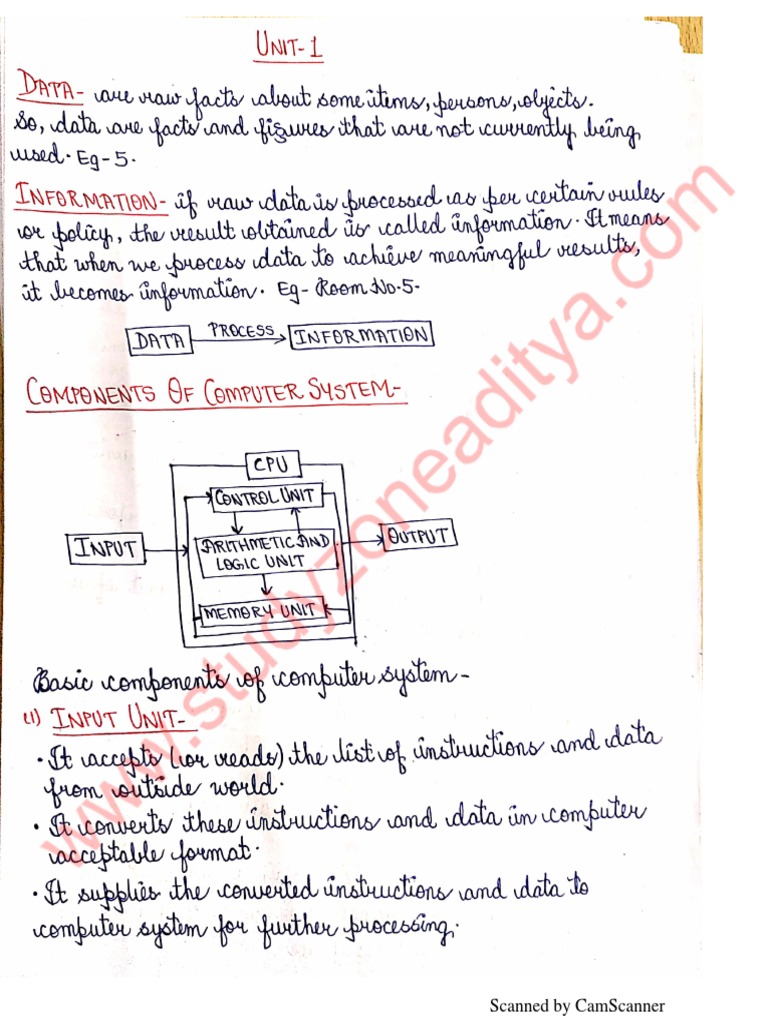 UNIT-1
DATA- are raw facts about some items, persons, objects.
So, data are facts and figures that are not currently being
used. Eg-5.
INFORMATION- if raw data is processed as per certain rules
or policy, the result obtained is called information. It means
that when we process data to achieve meaningful results,
it becomes information. Eg- Room No.5.
DATA PROCESS INFORMATION
COMPONENTS OF COMPUTER SYSTEM-
CPU
CONTROL UNIT
INPUT
ARITHMETIC AND
LOGIC UNIT
OUTPUT
MEMORY UNIT
Basic components of computer system-
(1) INPUT UNIT-
• It accepts (or reads) the list of instructions and data
from outside world.
• It converts these instructions and data in computer
acceptable format.
• It supplies the converted instructions and data to
computer system for further processing.
www.studyzoneaditya.com
Scanned by CamScanner